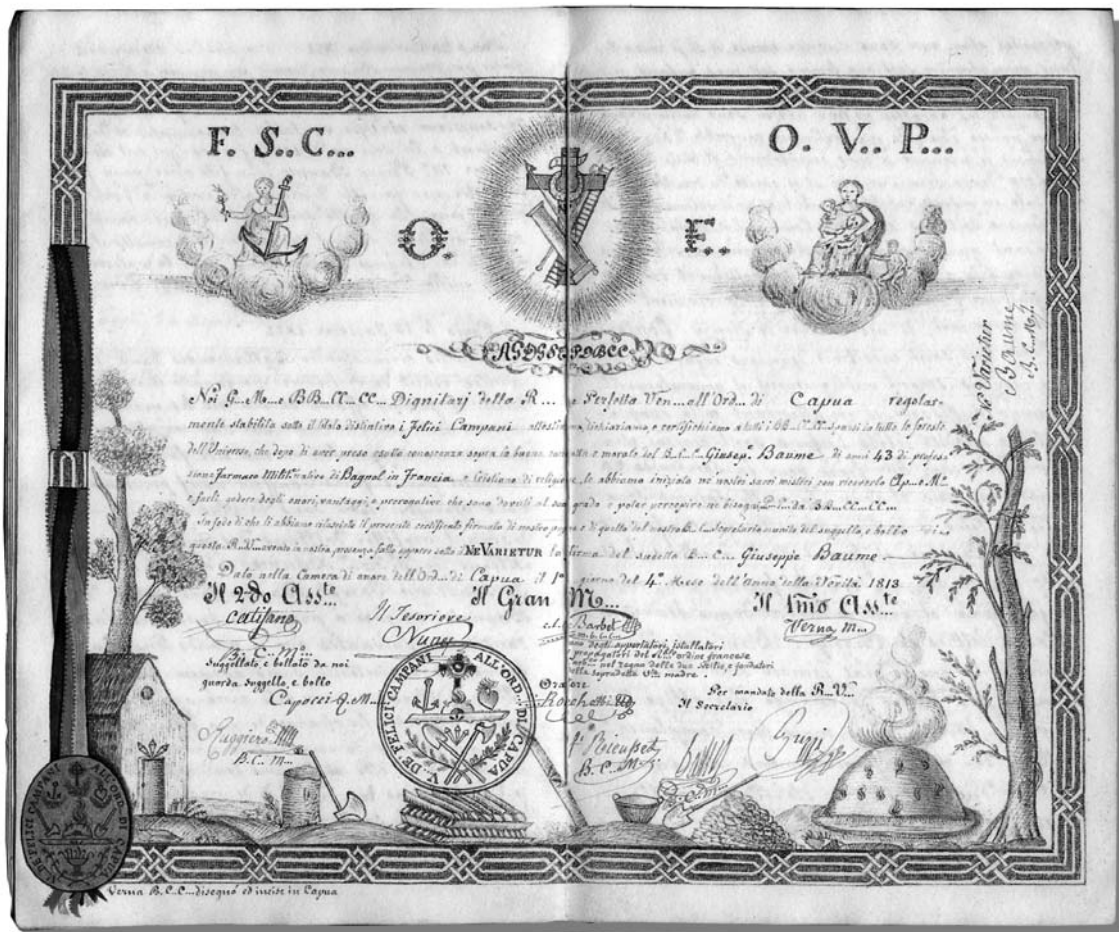 F. S.. C...
O. V.. P...
O.
E..
Noi G... M... e BB... CC... CC... Dignitarj della R... Perfetta Ven... all'Ord... di Capua regolar-
mente stabilita sotto il titolo distintivo i Felici Campani attestiamo, dichiariamo, e certifichiamo a tutti i BB... CC... CC... sparsi in tutte le foreste
dell'Universo, che dopo di aver preso esatta conoscenza sopra la buona condotta e morale del B... C... C... Giusep. Baume di anni 43 di profes-
sione Farmaco Milit. nativo di Bagnol in Francia e Cristiano di religione, lo abbiamo iniziato ne nostri sacri misteri con riceverlo Ap... e M...
e farli godere degli onori, vantaggi, e prerogative che sono dovuti al suo grado e poter percepire ne bisogni da BB... CC... CC...
In fede di che li abbiamo rilasciato il presente certificato firmato di nostro pugno e di quello del nostro B... C... Secretario munito del suggello, e bollo di
questa R... V... avendo in nostra presenza fatto apporre sotto il NE VARIETUR la firma del sudetto B... C... Giuseppe Baume
Dato nella Camera di onore dell'Ord... di Capua il 1° giorno del 4° Mese dell'Anno della Verità 1813
Il 2do Ass...te
Il Tesoriere
Il Gran M...
Il 1mo Ass...te
Catifano
Nunez
Barbet
Verna M...
B... C... M...
suggellato e bollato da noi
guarda suggello, e bollo
Capocci Q... M...
uno degli apportatori, istallatori
e propagatori del ordine francese
nel regno delle due Sicilie, e fondatori
della sopradetta madre.
Oratore
Rocchetti
Per mandato della R... V...
Il Secretario
Ruggiero
B... C... M...
Rieusset
B... C... M...
V... DE FELICI CAMPANI ALL'ORD... DI CAPUA
V... DE FELICI CAMPANI ALL'ORD... DI CAPUA
Ne Varietur
Baume
Verna B... C... C... disegnò ed incise in Capua